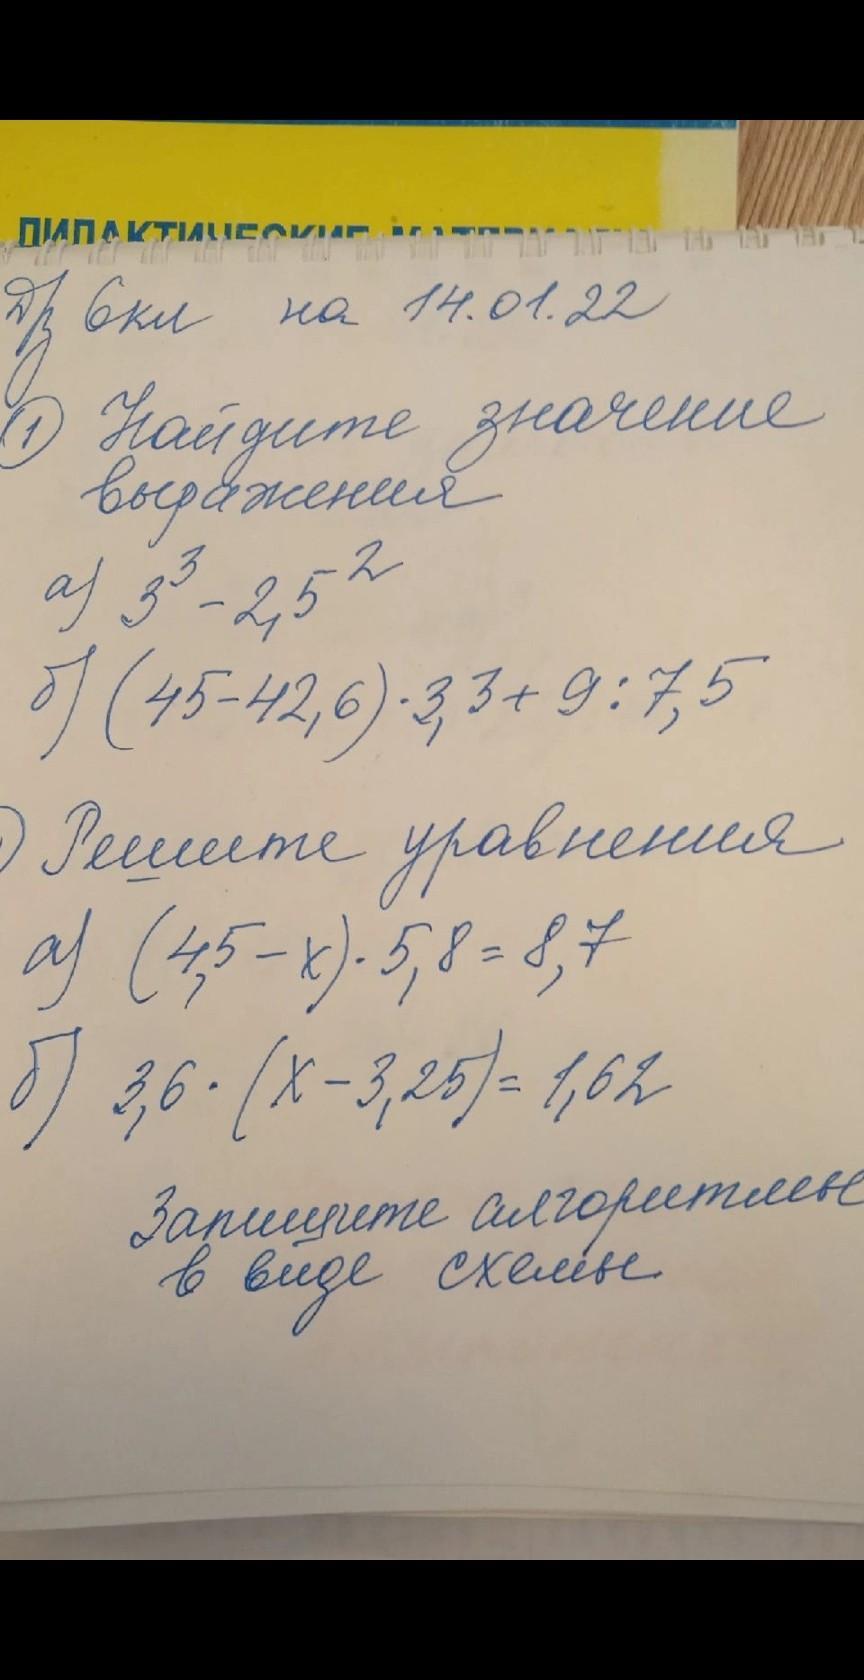 ДИДАКТИЧЕСКИЕ МАТЕРИАЛЫ
Д/з 6кл на 14.01.22
1) Найдите значение
выражения
а) 3³ - 2,5²
б) (45-42,6)·3,3+9:7,5
) Решите уравнения
а) (4,5-х)·5,8=8,7
б) 3,6·(х-3,25)=1,62
Запишите алгоритмы
в виде схемы